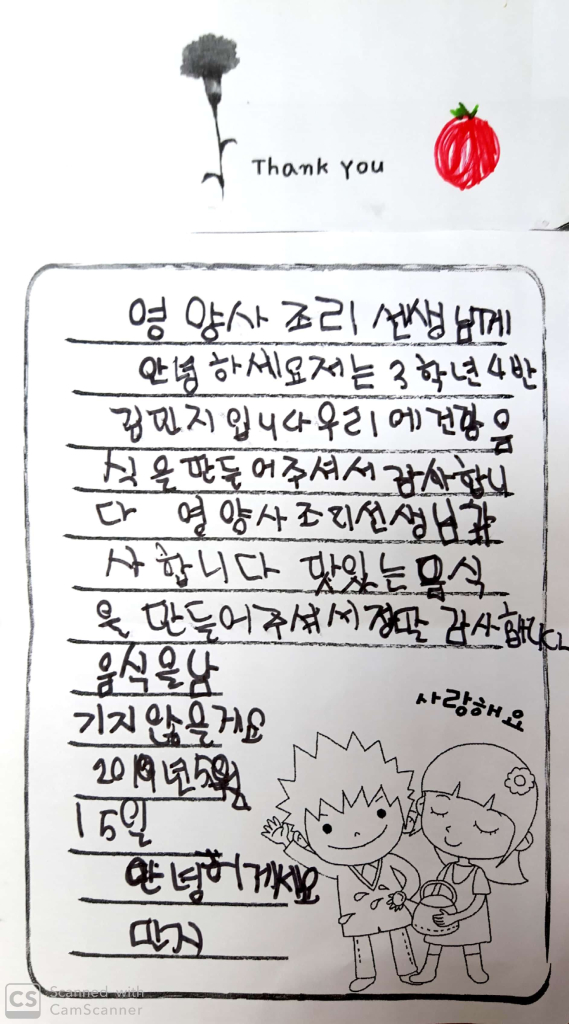 Thank You
영양사 조리 선생님께
안녕하세요 저는 3학년 4반
김민지입니다 우리에 건강 음
식을 만들어주셔서 감사합니
다 영양사조리선생님감
사합니다 맛있는 음식
을 만들어주셔서정말 감사합니다
음식을남
기지 않을게요
2019년5월
15일
안녕히게세요
민지
사랑해요
CS Scanned with
CamScanner